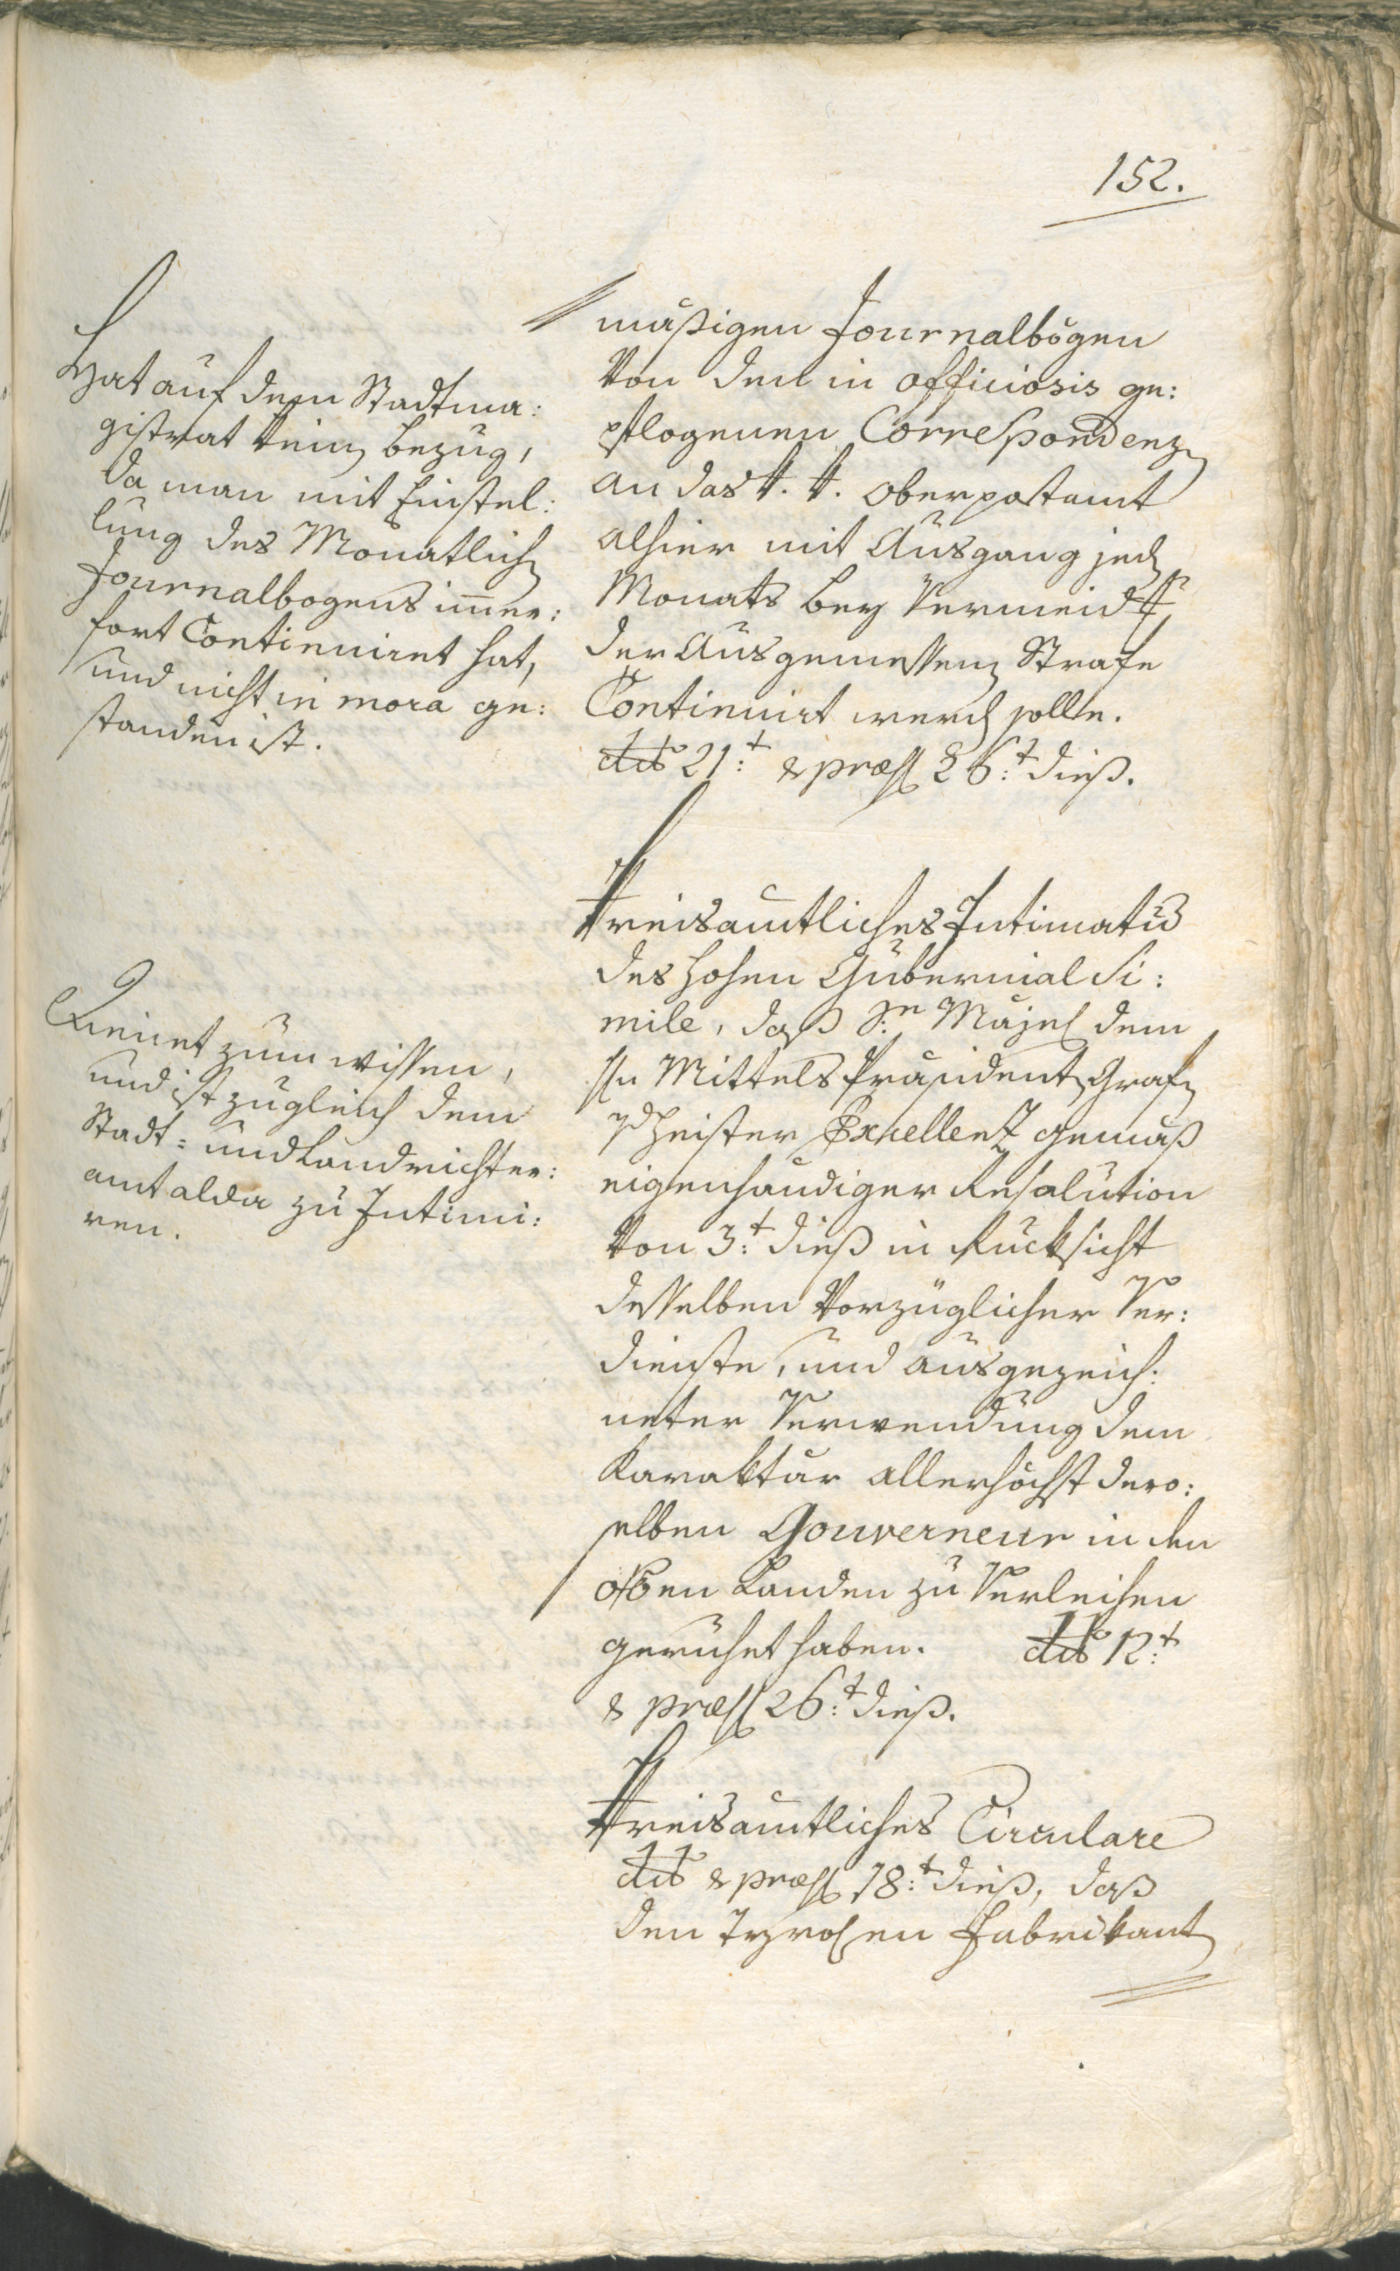 152.
Hat auf dem Stadtma:
gistrat kein bezug,
da man mit Einstel:
lung des Monatlich
Journalbogens im̅er:
fort Continuiret hat,
und nicht in mora ge:
standen ist.
mäßigen Journalbögen
von den in officiosis ge:
pflogenen Correspondenz
an das k. k. oberpostamt
alhier mit Ausgang jed
Monats bey Vermeid
der Ausgemessen Strafe
Continuirt werd solle.
ddo 21:t & præs 26:t dieß.
Kreisamtliches Intimatū
des hohen Gubernial Si:
mile, daß S:e Majest dem
Hn Mittels Präsident Graf
v Heister Excellenz gemäß
eigenhändiger Resolution
von 3:t dieß in Rücksicht
desselben vorzüglicher Ver:
dienste, und ausgezeich:
neter Verwendung dem
Karaktär allerhöchst dero:
selben Gouverneur in den
oöen Landen zu Verleihen
geruhet haben. ddo 12:t
& præs 26:t dieß.
Dienet zum wissen,
und ist zugleich dem
Stadt- und Landrichter:
amt alda zu Intimi:
ren.
Kreisamtliches Circulare
ddo & præs 18:t dieß, daß
den Tyrolen Fabrikant